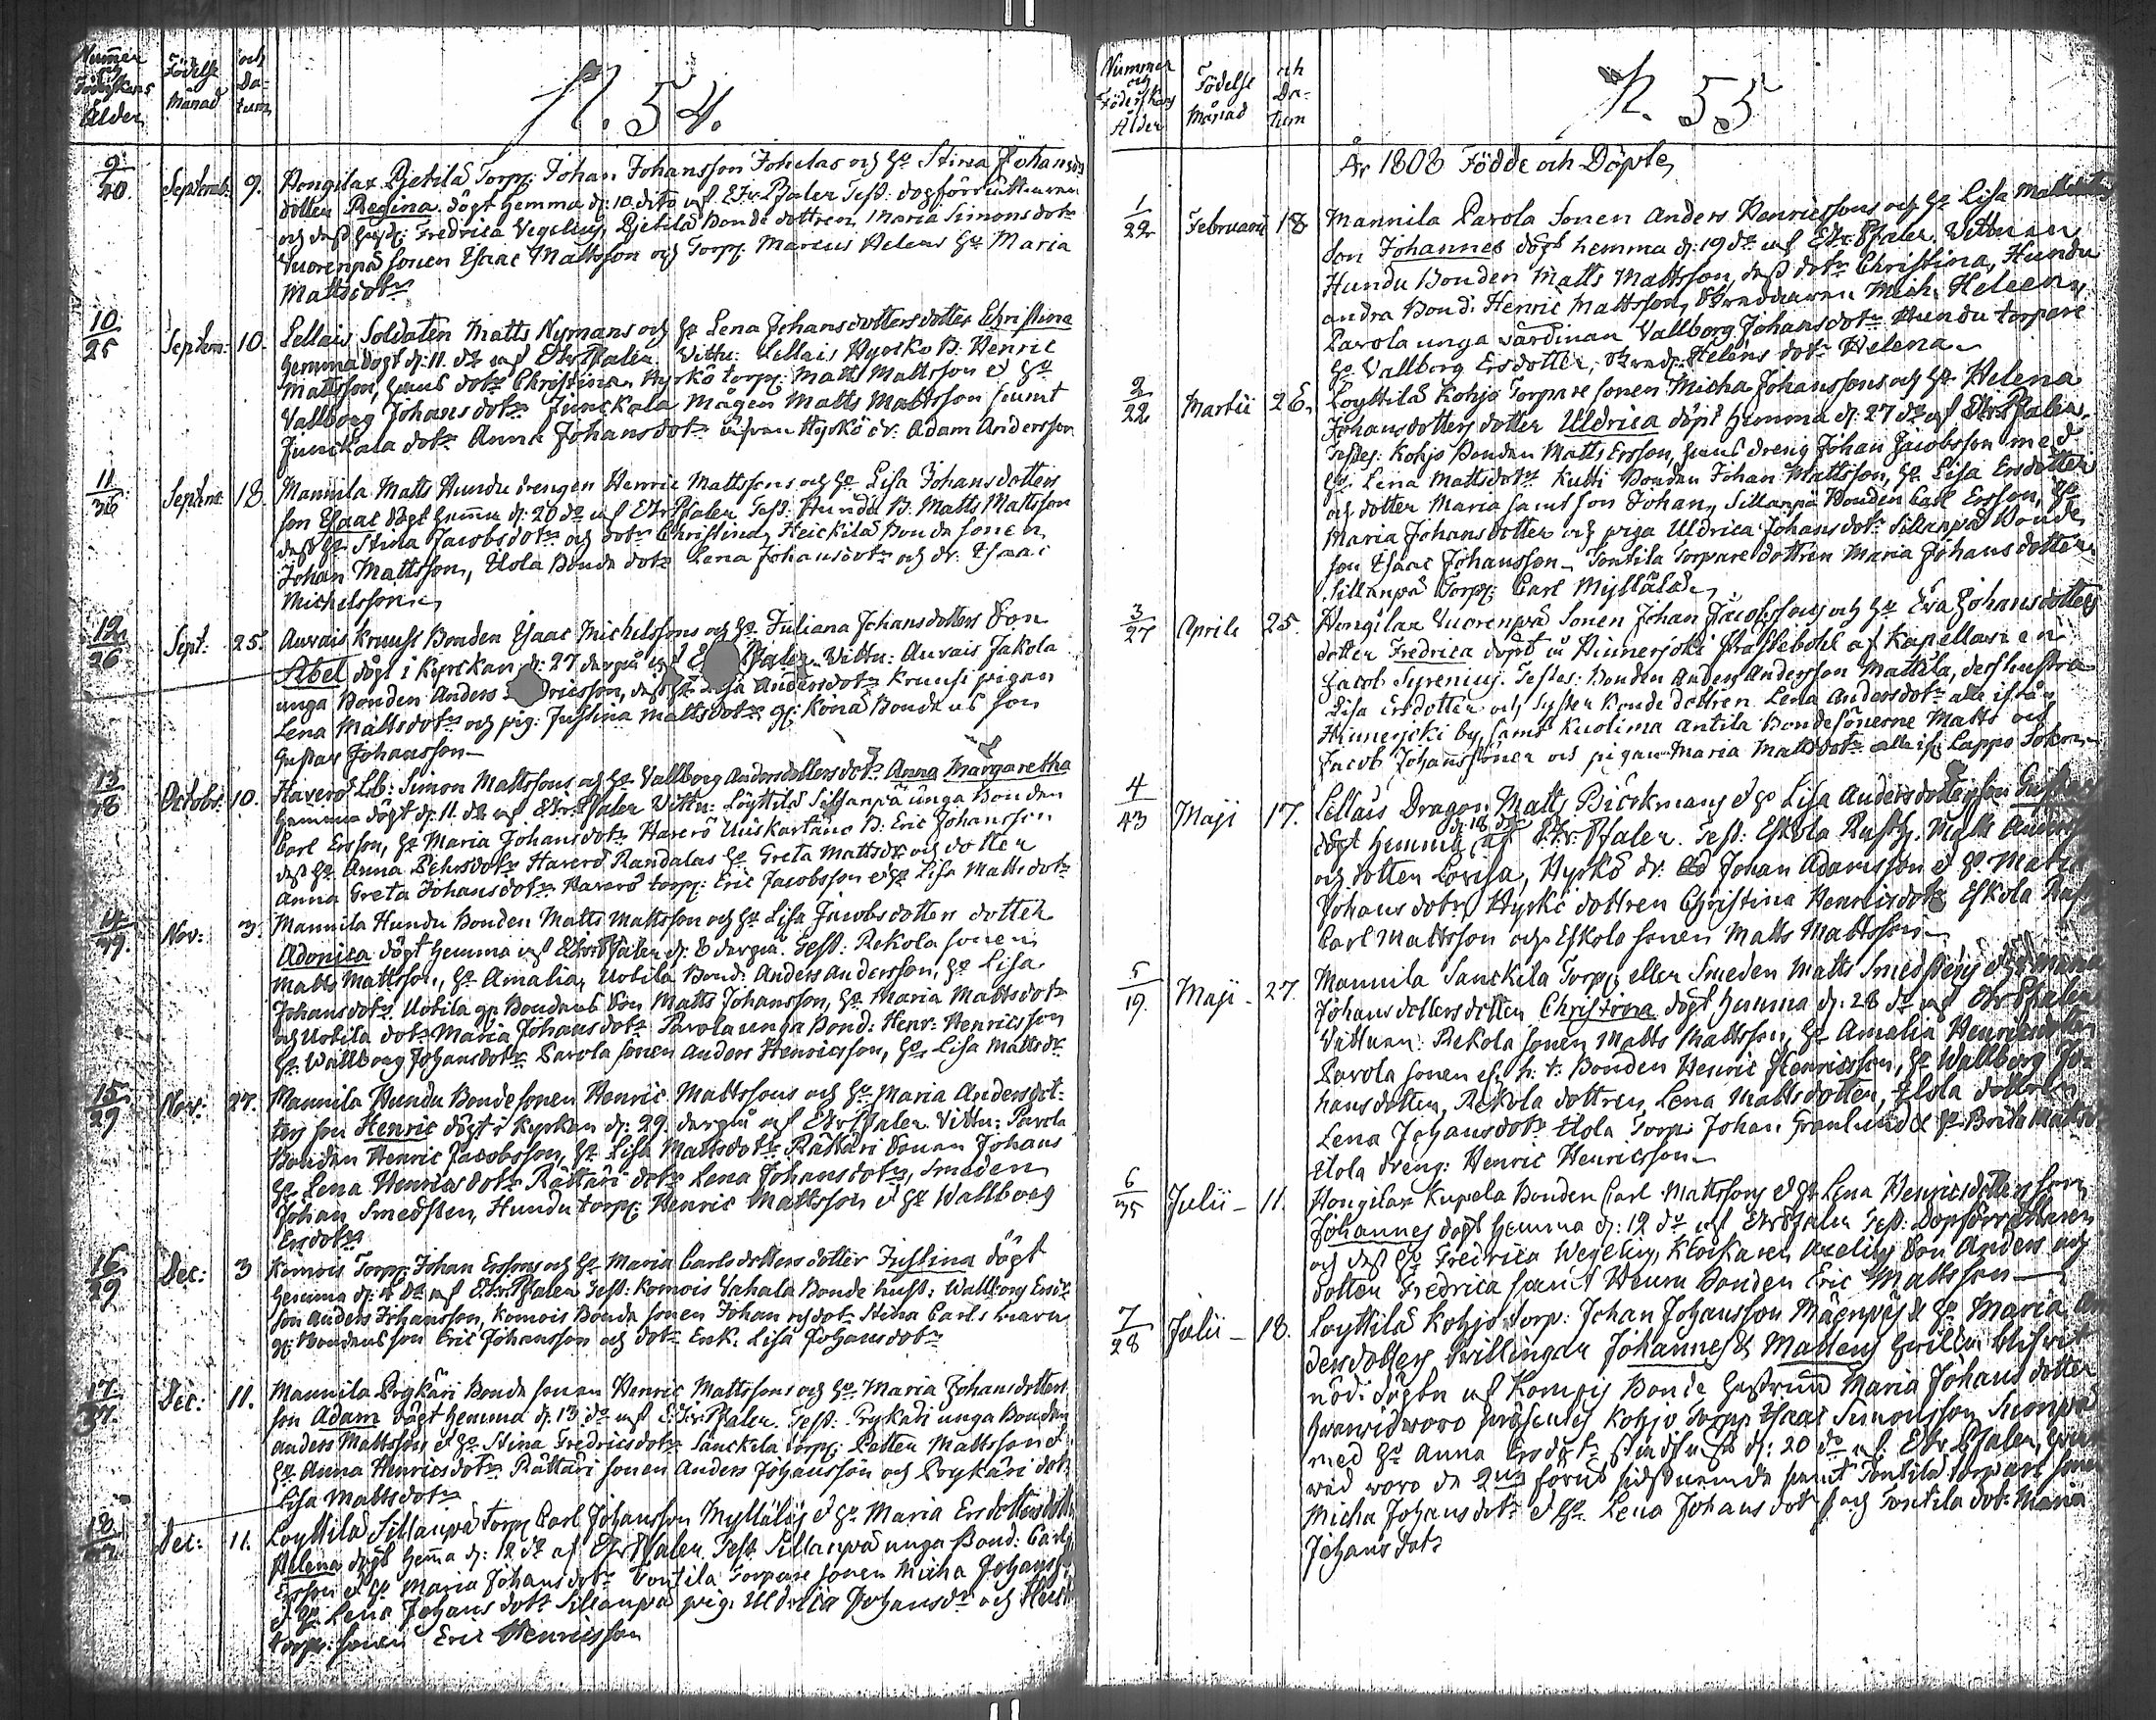 Nummer och Föderskans Ålder
Födelse Månad
och Datum
N. 54.
9/40. Septemb: 9. Hongilax Pietilä Torp: Johan Johansson Johelas och h:o Stina Johans
dotter Regina dögt hemma d: 10 dito af E.v.Pfaler Test: dopförrättaren
och dess hust: Fredrica Vegelius, Pietilä Bonde dottren Maria Simonsdotr
Vuorenpä sonen Esaac Mattsson och Torp: Marcus Helens h:o Maria
Mattsdotr
10/25 Septem: 10. Lellais Soldaten Matts Nymans och h:o Lena Johansdotters dotter Christina
hemma dögt d: 11. do af E.v.Pfaler. Vittn: Lellais Hyrkö B: Henric
Mattsson, hans dotr Christina, Hyrkö torp: Matts Mattsson & h:o
Vallborg Johansdotr Junckala mågen Matts Mattsson samt
Junckala dotr Anna Johansdotr Hyrkö dr: Adam Andersson
11/36 Septem: 18. Mannila Matts Hundu drengen Henric Mattssons och h:o Lisa Johansdotters
son Esaac dögt hemma d: 20 do af E.v.Pfaler Test: Hundu B: Matts Mattsson
dess h:o Stina Jacobsdotr och dotr Christina, Heickilä Bonde sonen
Johan Mattsson, Uola Bonde dotr Lena Johansdotr och dr: Esaac
Michelsson
12/26 Sept: 25. Auvais Kruusi Bonden Esaac Michelssons och h:o Juliana Johansdotters Son
Abel dögt i Kyrckan d: 27 derpå af Pfaler. Vittn: Auvais Jakola
unga Bonden Anders ricsson, dess h:o Lisa Andersdotr Kruusi pigan
Lena Mattsdotr och pig: Justina Mattsdotr gl: Könä Bondens son
Gustav Johansson
13/38 Octobr: 10. Haverö Lb: Simon Mattssons och h:o Vallborg Andersdotters dotr Anna Margaretha
hemma dögt d: 11. do af E.v.Pfaler Vittn: Löyttilä Sillanpä unga Bonden
Carl Ersson, h:o Maria Johansdotr Haverö Uuskartano B: Eric Johansson
dess h:o Anna Pehrsdotr Haverö Randalas h:o Greta Mattsdr och dotter
Anna Greta Johansdotr Haverö torp: Eric Jacobsson & h:o Lisa Mattsdotr
14/39. Nov: 3. Mannila Hundu Bonden Matts Mattsson och h:o Lisa Jacobsdotters dotter
Adonica dögt hemma af E.v.Pfaler d: 8 derpå. Test: Rekola sonen
Matts Mattsson, h:o Amalia, Uotila Bond: Anders Andersson, h:o Lisa
Johansdotr Uotila gl: Bondens Son Matts Johansson, h:o Maria Mattsdotr
och Uotila dotr Maria Johansdotr Parola unga Bond: Henr: Henricsson
h:o Wallborg Johansdotr Parola sonen Anders Henricsson, h:o Lisa Mattsdr
15/29 Nov: 27. Mannila Hundu Bonde sonen Henric Mattssons och h:o Maria Andersdot-
ters son Henric dögt i Kyrkan d: 29. derpå af E.v.Pfaler Vittn: Parola
Bonden Henric Jacobsson, h:o Lisa Mattsdotr Rättäri Sonen Johans
h:o Lena Henricsdotr Rättäri dotr Lena Johansdotr, Smeden
Johan Smedsten, Hundu torp: Henric Mattsson & h:o Wallborg
Ersdotr
16/29 Dec: 3 Komois Torp: Johan Erssons och h:o Maria Carlsdotters dotter Justina dögt
hemma d: 4 do af E.v.Pfaler Test: Komois Vahala Bonde hust: Wallborg
son Anders Johansson, Komois Bonde sonen Johan och dotr Stina Carls
gl: Bondens son Eric Johansson och dotr Enk. Lisa Johansdotr
17/37. Dec: 11. Mannila Prykäri Bonde sonen Henric Mattssons och h:o Maria Johansdotters
son Adam dögt hemma d: 13 do af E.v.Pfaler. Test: Prykäri unga Bonden
Anders Mattsson & h:o Stina Fredricsdotr Sanckila torp: Petter Mattsson &
h:o Anna Henricsdotr Rättäri sonen Anders Johansson och Prykäri dotr
Lisa Mattsdotr
18 Dec: 11. Löyttilä Sillanpä Torp Carl Johansson Myllälös & h:o Maria Ersdotters
Helena dögt hemma d: 12 do af E.v.Pfaler. Test. Sillanpä unga Bond: Carl
Ersson & h:o Maria Johansdotr Tontila Torpare sonen Micha Johans
& h:o Lena Johansdotr Sillanpä pig: Uldrica Johansdr och
torp: sonen Eric Henricsson
Nummer och Föderskans Ålder
Födelse Månad
och Datum
N. 55
År 1808 Födde och Döpte
1/22 Februarii 18 Mannila Parola Sonen Anders Henricssons och h:o Lisa Mattsdotters
Son Johannes dögt hemma d: 19 do af E.v.Pfaler. Vittnen
Hundu Bonden Matts Mattsson, dess dotr Christina, Hundu
andra Bond: Henric Mattsson, Mich: Heleen,
Parola unga värdinan Vallborg Johansdotr Hundu torpare
h:o Vallborg Ersdotter, Heléns dotr Helena
2/22 Martii 26. Löyttilä Kohjo Torpare sonen Micha Johanssons och h:o Helena
Johansdotters dotter Uldrica döpt hemma d: 27 do af E.v.Pfaler.
Testes: Kohjo Bonden Matts Ersson, hans dreng Johan Jacobsson med
h:o Lena Mattsdotr Kutti Bonden Johan Mattsson, h:o Lisa Ersdotter
och dotter Maria samt son Johan, Sillanpä Bonden Carl Ersson, h:o
Maria Johansdotter och piga Uldrica Johansdotr Sillanpä Bonde
son Esaac Johansson, Tontila Torpare dottren Maria Johansdotter
Sillanpä Torp: Carl Myllälä
3/27 Aprili 25. Hongilax Vuorenpä Sonen Johan Jacobssons och h:o Eva Johansdotters
dotter Fredrica döpt i Hinnerjoki Prästebohl af Kapellanen
Jacob Tyrenius. Testes: Bonden Anders Andersson Mattila, dess hustru
Lisa Ersdotter och Syster Bonde dottren Lena Andersdotr alle ifrån
Hinnerjoki by, samt Kuolima Antila Bondesönerne Matts och
Jacob Johanssöner och pigan Maria Mattsdotr alla if: Lappo Sokn
4/43 Maji 17. Lellais Dragon Matts Biörkmans & h:o Lisa Andersdotters son
dögt hemma d: 18 do af E.v.Pfaler. Test: Eskola Rusth: Matts
och dotter Lovisa, Hyrkö dr: Johan Adamsson & h:o
Johansdotr, Hyrkö dottren Christina Henricsdotr Eskola
Carl Mattsson och Eskola sonen Matts Mattsson
5/19. Maji 27. Mannila Sanckila Torp: eller Smeden Matts Smedstens & h:o
Johansdotters dotter Christina dögt hemma d: 28 do af E.v.Pfaler
Vittnen: Rekola sonen Matts Mattsson, h:o Amelia Henricsdotter
Parola sonen h. t. Bonden Henric Henricsson, h:o Wallborg Jo-
hansdotter, Rekola dottren Lena Mattsdotter, Uola dottren
Lena Johansdotr Uola Torp: Johan Granlund & h:o Brita
Uola dreng: Henric Henricsson
6/35 Julii 11. Hongilax Kupela Bonden Carl Mattssons & h:o Lena Henricsdotters son
Johannes dögt hemma d: 12 do af E.v.Pfaler Test: Dopförrättaren
och dess h:o Fredrica Wegelius, Klockaren Axelius Son Anders och
dotter Fredrica samt Bonden Eric Mattsson
7/28 Julii 18. Löyttilä Kohjo Torp: Johan Johansson Mäenpäs & h:o Maria An
dersdotters Tvillingar Johannes & Matteus hvilka blifvit
nöd: dögte af Kompis Bonde hustrun Maria Johansdotter
hvarvid voro präsentes Kohjo Torp: Esaac Simonsson
med h:o Anna Ersdotr d: 20 do af E.v.Pfaler,
wid woro de 2ne förut sidstnemde samt Tontila torpare
Micha Johansdotr & h:o Lena Johansdotr och Tontila dotr Maria
Johansdotr